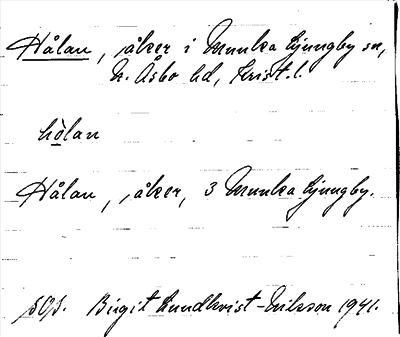 Hålan, åker i Munka Ljungby sn,
N. Åsbo hd, Krist. l.
hòlan
Hålan, åker, 3 Munka Ljungby.
Birgit Lundkvist-Erikson 1941.